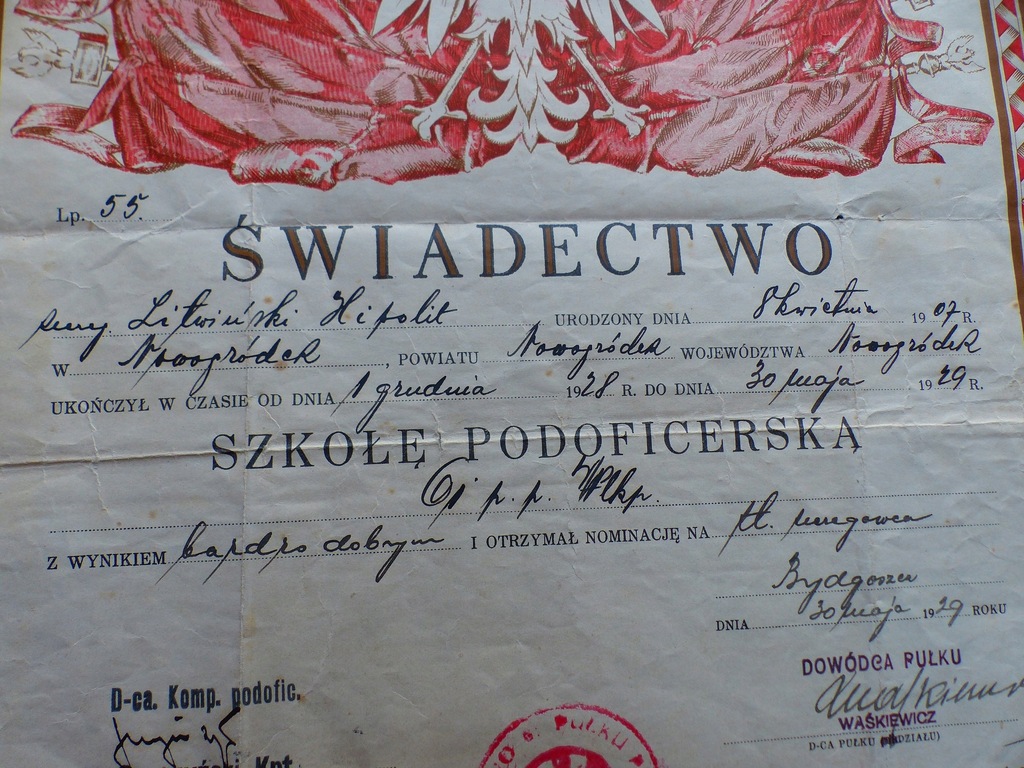 Lp. 55.
ŚWIADECTWO
szereg. Litwiński Hipolit URODZONY DNIA 8 kwietnia 1907 R.
W Nowogródek, POWIATU Nowogródek WOJEWÓDZTWA Nowogródek
UKOŃCZYŁ W CZASIE OD DNIA 1 grudnia 1928 R. DO DNIA 30 maja 1929 R.
SZKOŁĘ PODOFICERSKĄ
p. p. Wlkp.
Z WYNIKIEM bardzo dobrym I OTRZYMAŁ NOMINACJĘ NA st. szeregowca
Bydgoszcz
DNIA 30 maja 1929 ROKU
DOWÓDCA PUŁKU
WAŚKIEWICZ
D-CA PUŁKU (ODDZIAŁU)
D-ca. Komp. podofic.
Kpt.
PUŁKU